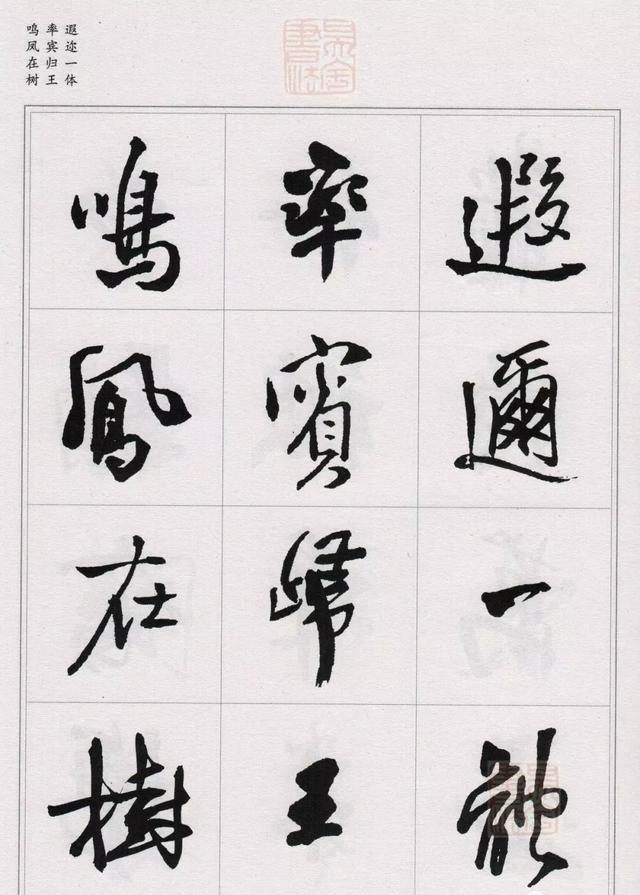 遐迩一体
率宾归王
鸣凤在树
遐邇一體
率賓歸王
鳴鳳在樹